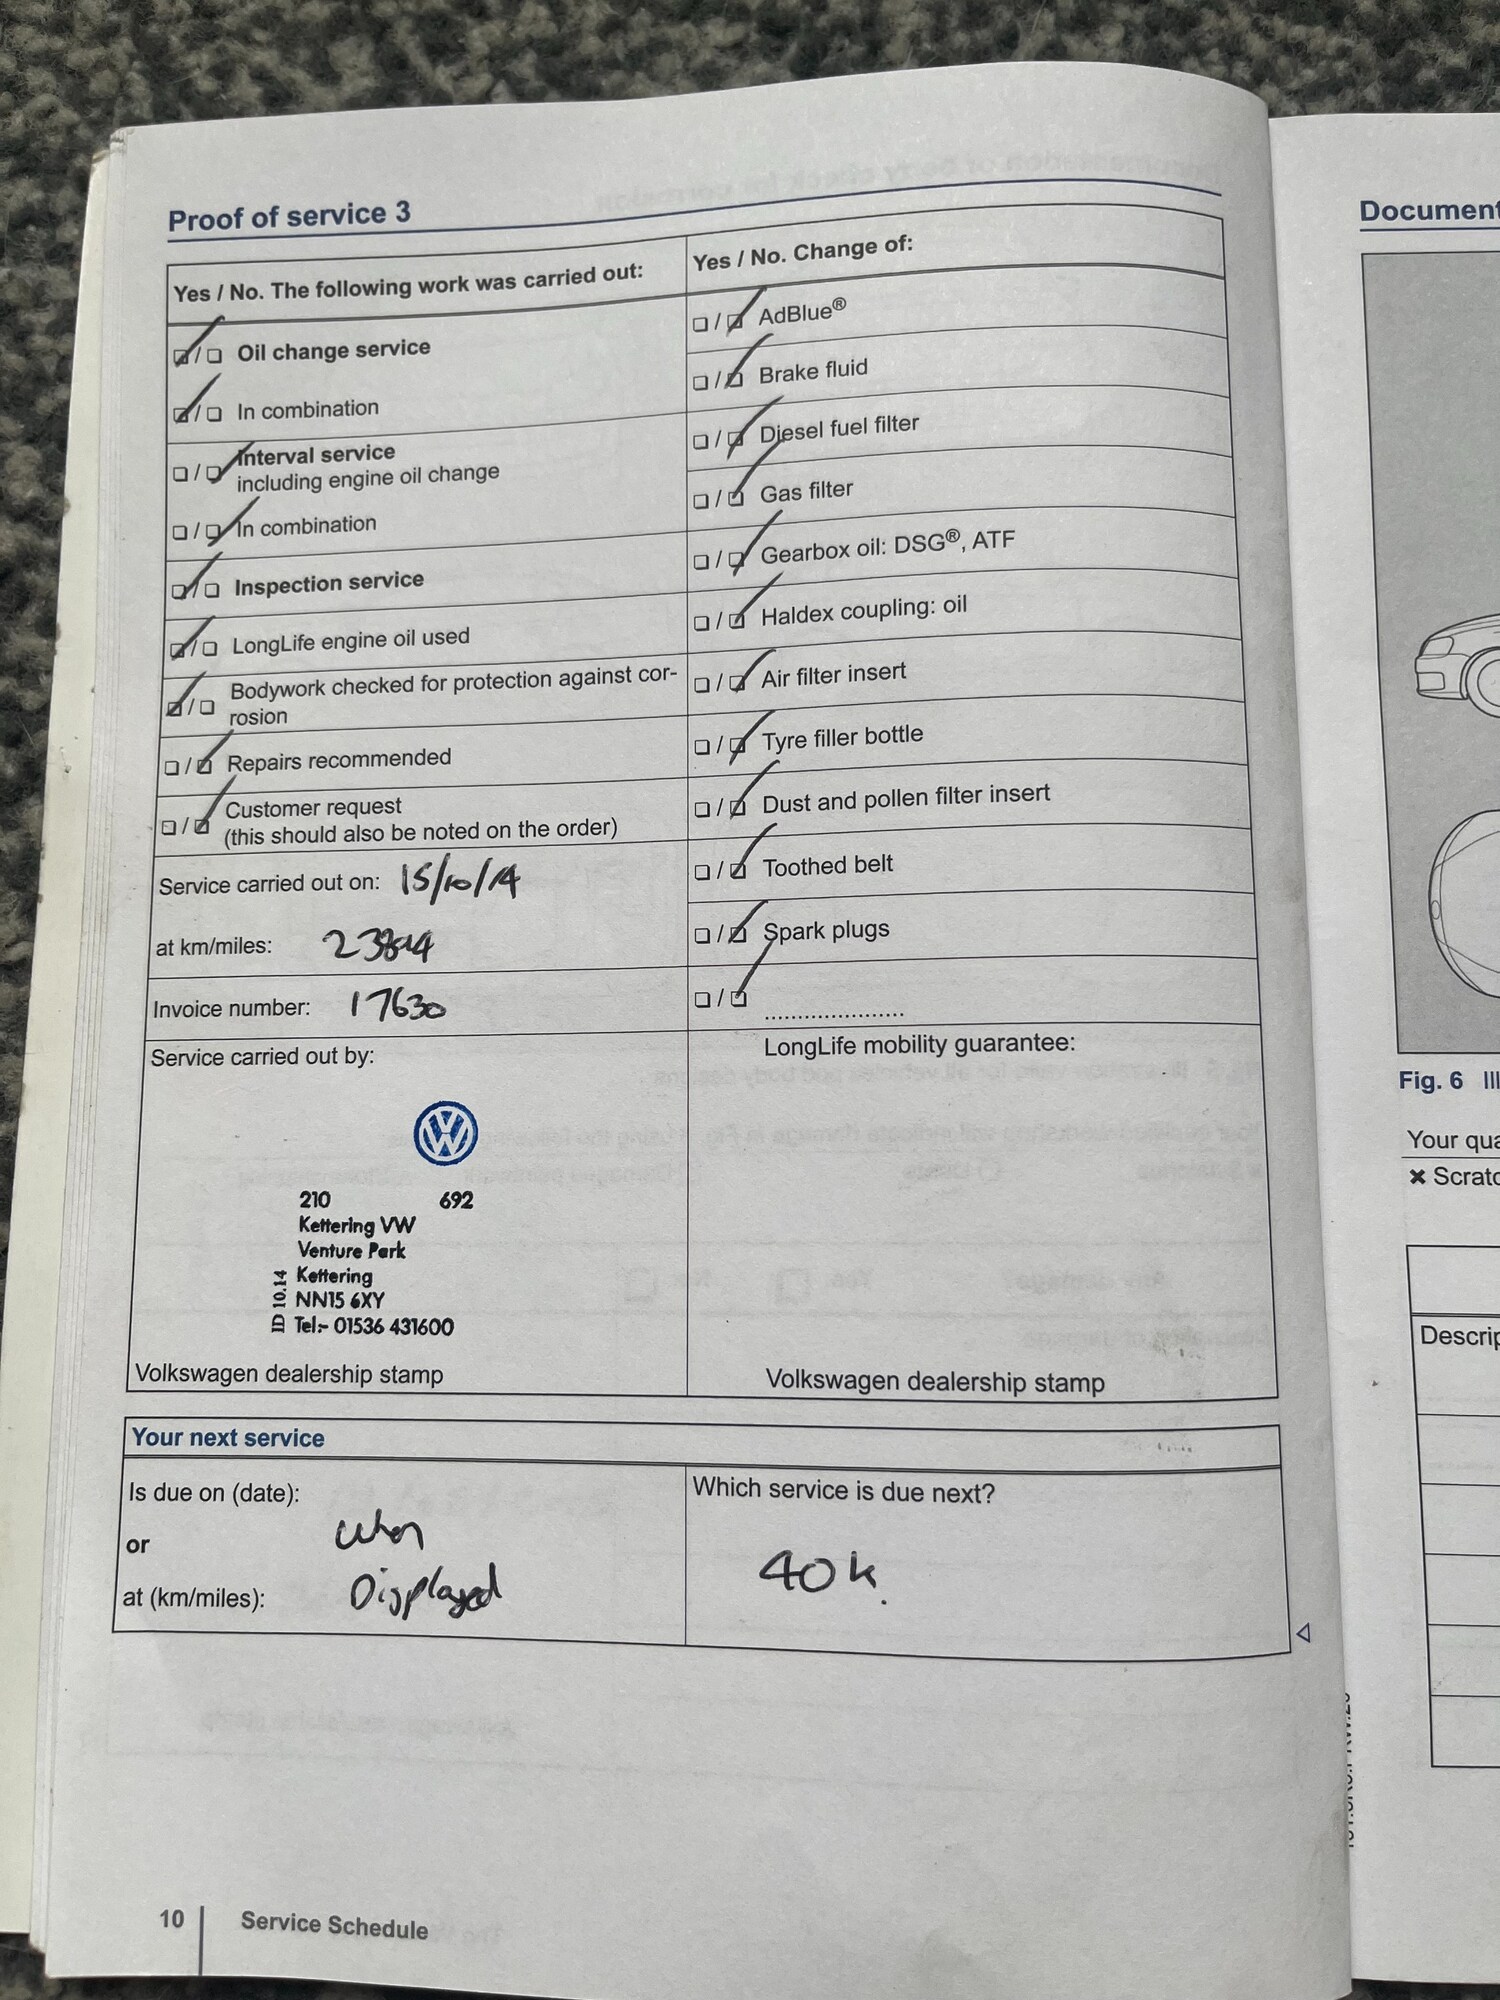 Proof of service 3
Yes / No. The following work was carried out:
Oil change service
In combination
Interval service
including engine oil change
In combination
Inspection service
LongLife engine oil used
Bodywork checked for protection against cor-
rosion
Repairs recommended
Customer request
(this should also be noted on the order)
Service carried out on: 15/10/14
at km/miles:
Invoice number: 17630
Service carried out by:
210 692
Kettering VW
Venture Park
Kettering
NN15 6XY
Tel:- 01536 431600
ID 10.14
Volkswagen dealership stamp
Yes / No. Change of:
AdBlue®
Brake fluid
Diesel fuel filter
Gas filter
Gearbox oil: DSG®, ATF
Haldex coupling: oil
Air filter insert
Tyre filler bottle
Dust and pollen filter insert
Toothed belt
Spark plugs
LongLife mobility guarantee:
Volkswagen dealership stamp
Your next service
Is due on (date):
or
at (km/miles):
When
Displayed
Which service is due next?
40k.
10 Service Schedule
Document
Fig. 6
Your qua
× Scratc
Descrip